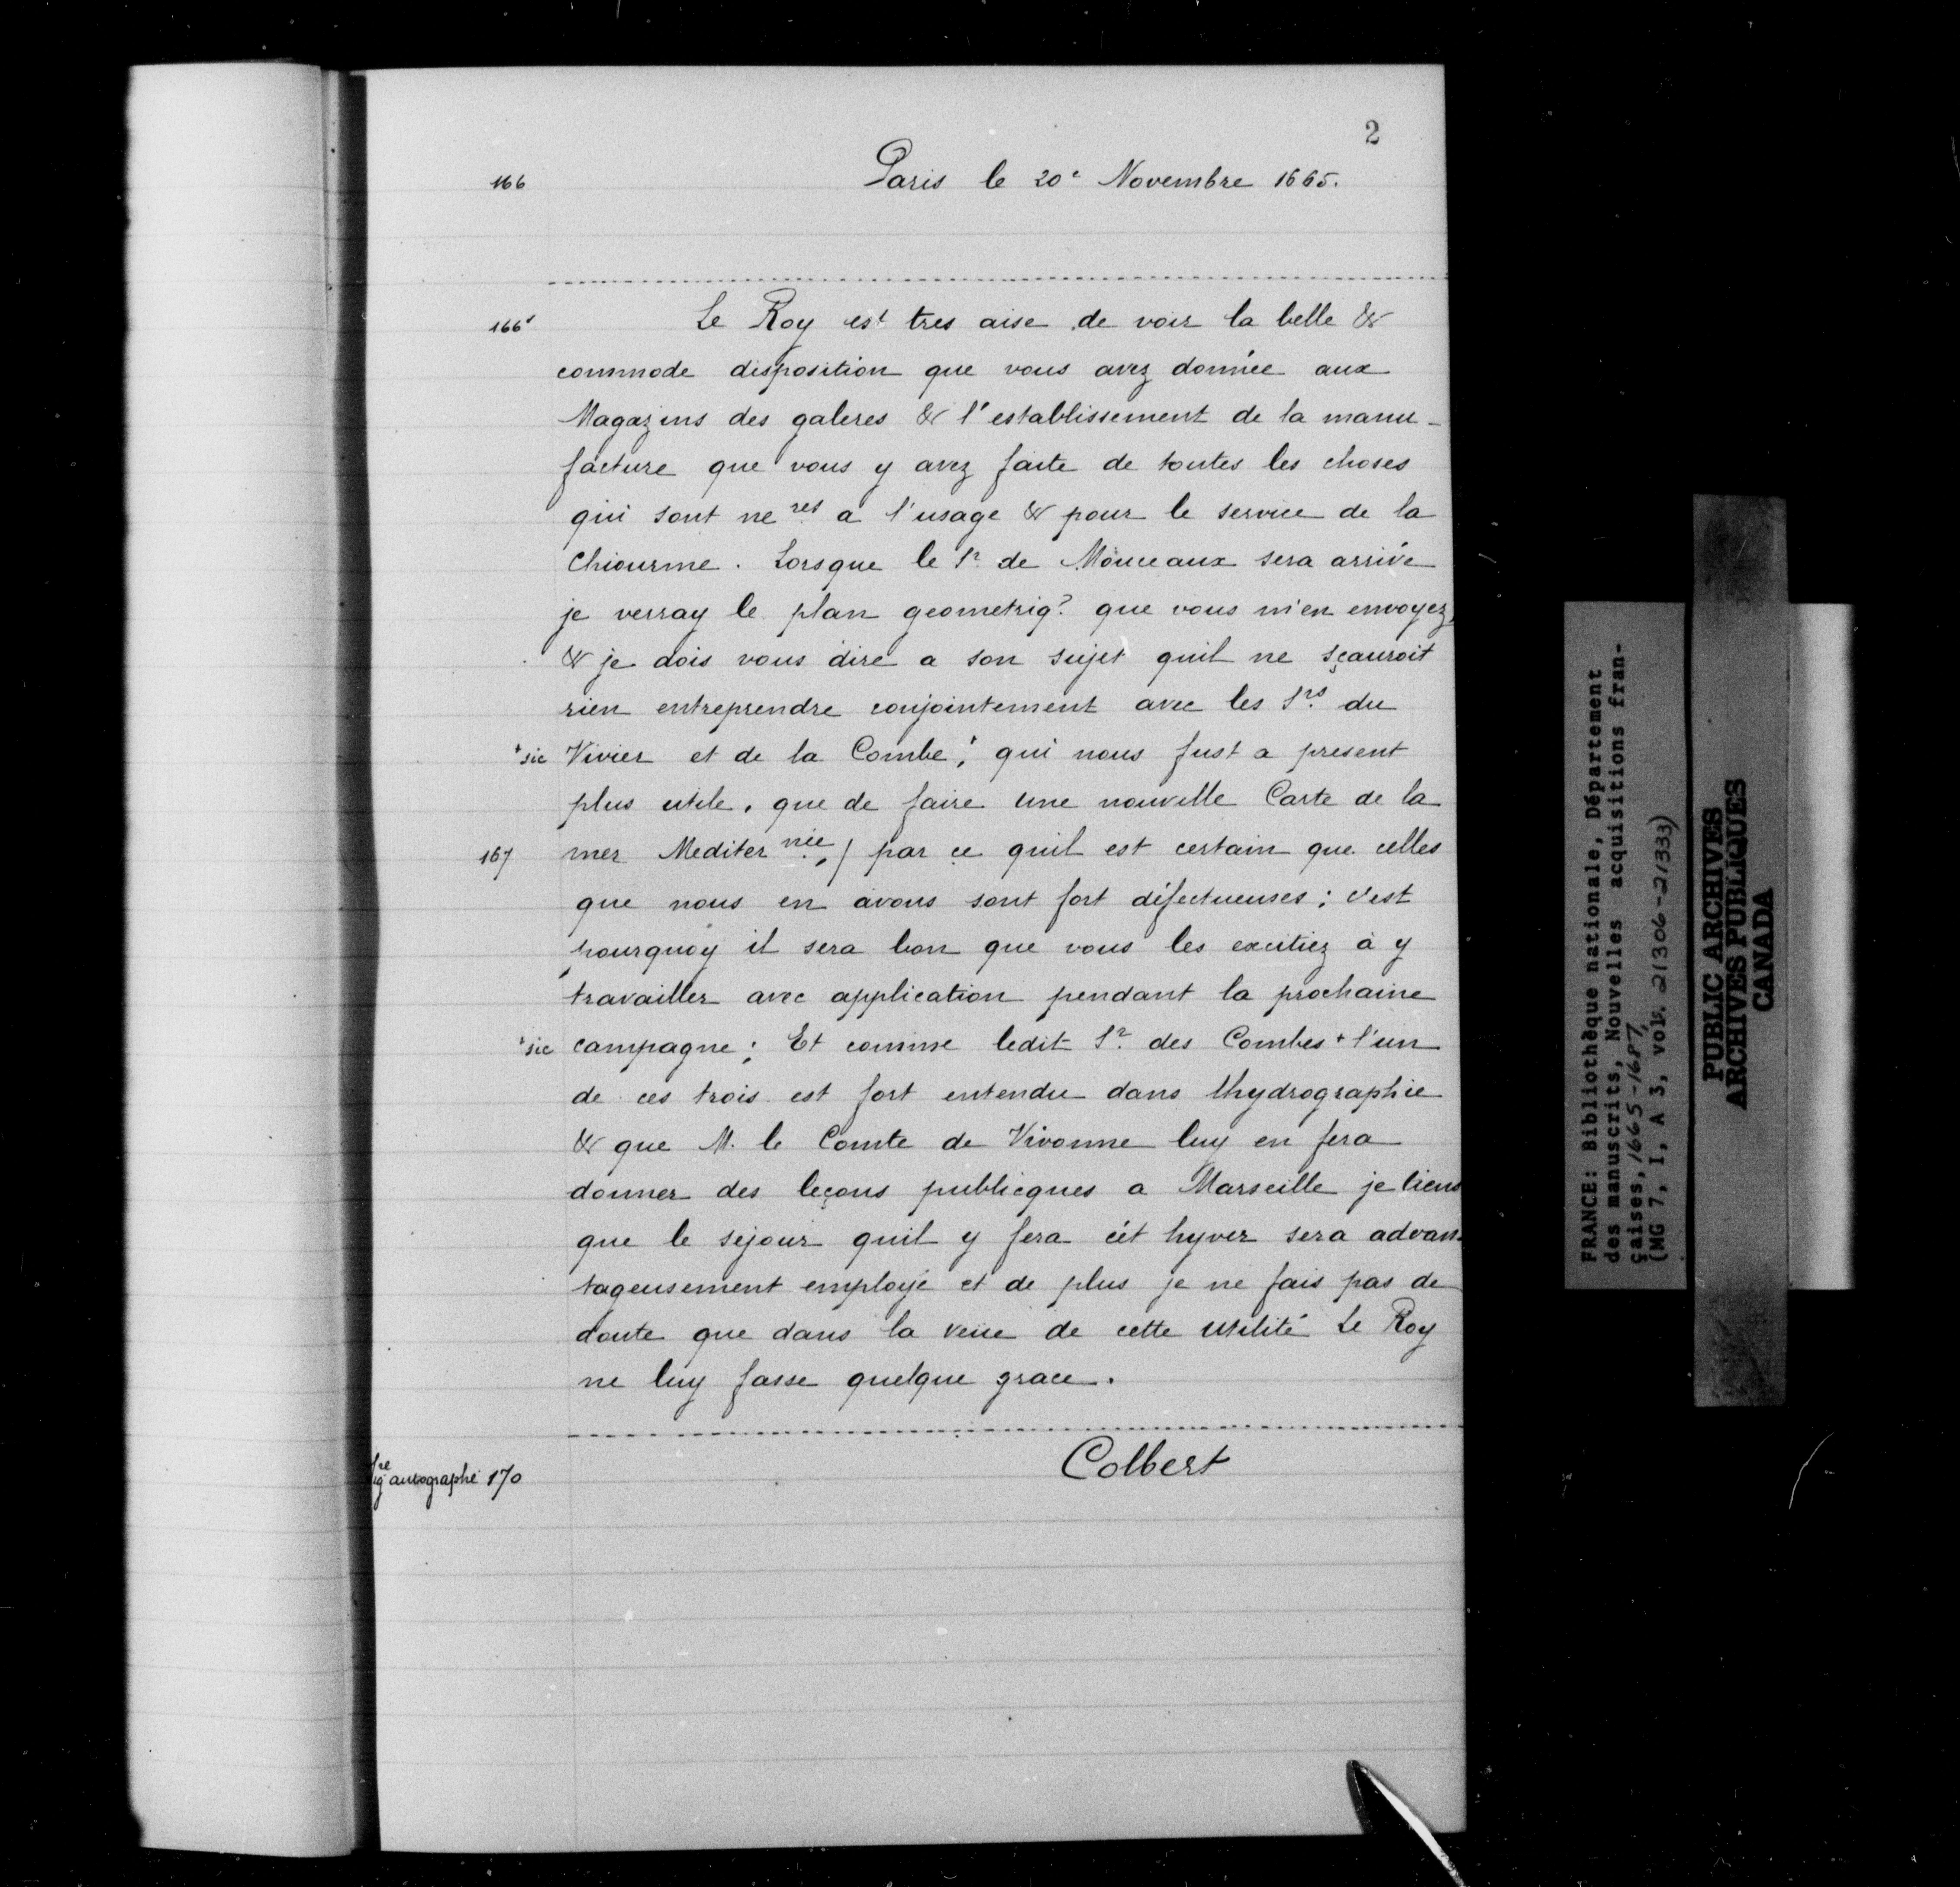 2
166 Paris le 20e Novembre 1665.
166v Le Roy est tres aise de voir la belle &
commode disposition que vous avez donnée aux
Magazins des galeres & l'establissement de la manu-
facture que vous y avez faite de toutes les choses
qui sont neres a l'usage & pour le service de la
Chiourme. Lorsque le Sr de Mouceaux sera arrivé
je verray le plan geometriq? que vous m'en envoyez,
& je dois vous dire a son sujet quil ne sçauroit
rien entreprendre conjointement avec les Srs du
+sic Vivier et de la Combe,+ qui nous fust a present
plus utile, que de faire une nouvelle Carte de la
167 mer Mediternée,/ par ce quil est certain que celles
que nous en avons sont fort défectueuses; c'est
pourquoy il sera bon que vous les excitiez à y
travailler avec application pendant la prochaine
+sic campagne; Et comme ledit Sr des Combes + l'un
de ces trois est fort entendu dans lhydrographie
& que M. le Comte de Vivonne luy en fera
donner des leçons publicques a Marseille je tiens
que le séjour quil y fera cét hyver sera advan-
tageusement employé et de plus je ne fais pas de
doute que dans la veüe de cette utilité Le Roy
ne luy fasse quelque grace.
Sigre autographe 170 Colbert
FRANCE: Bibliothèque nationale, Département
des manuscrits, Nouvelles acquisitions fran-
çaises, 1665-1687,
(MG 7, I, A 3, vols. 21306-21333)
PUBLIC ARCHIVES
ARCHIVES PUBLIQUES
CANADA